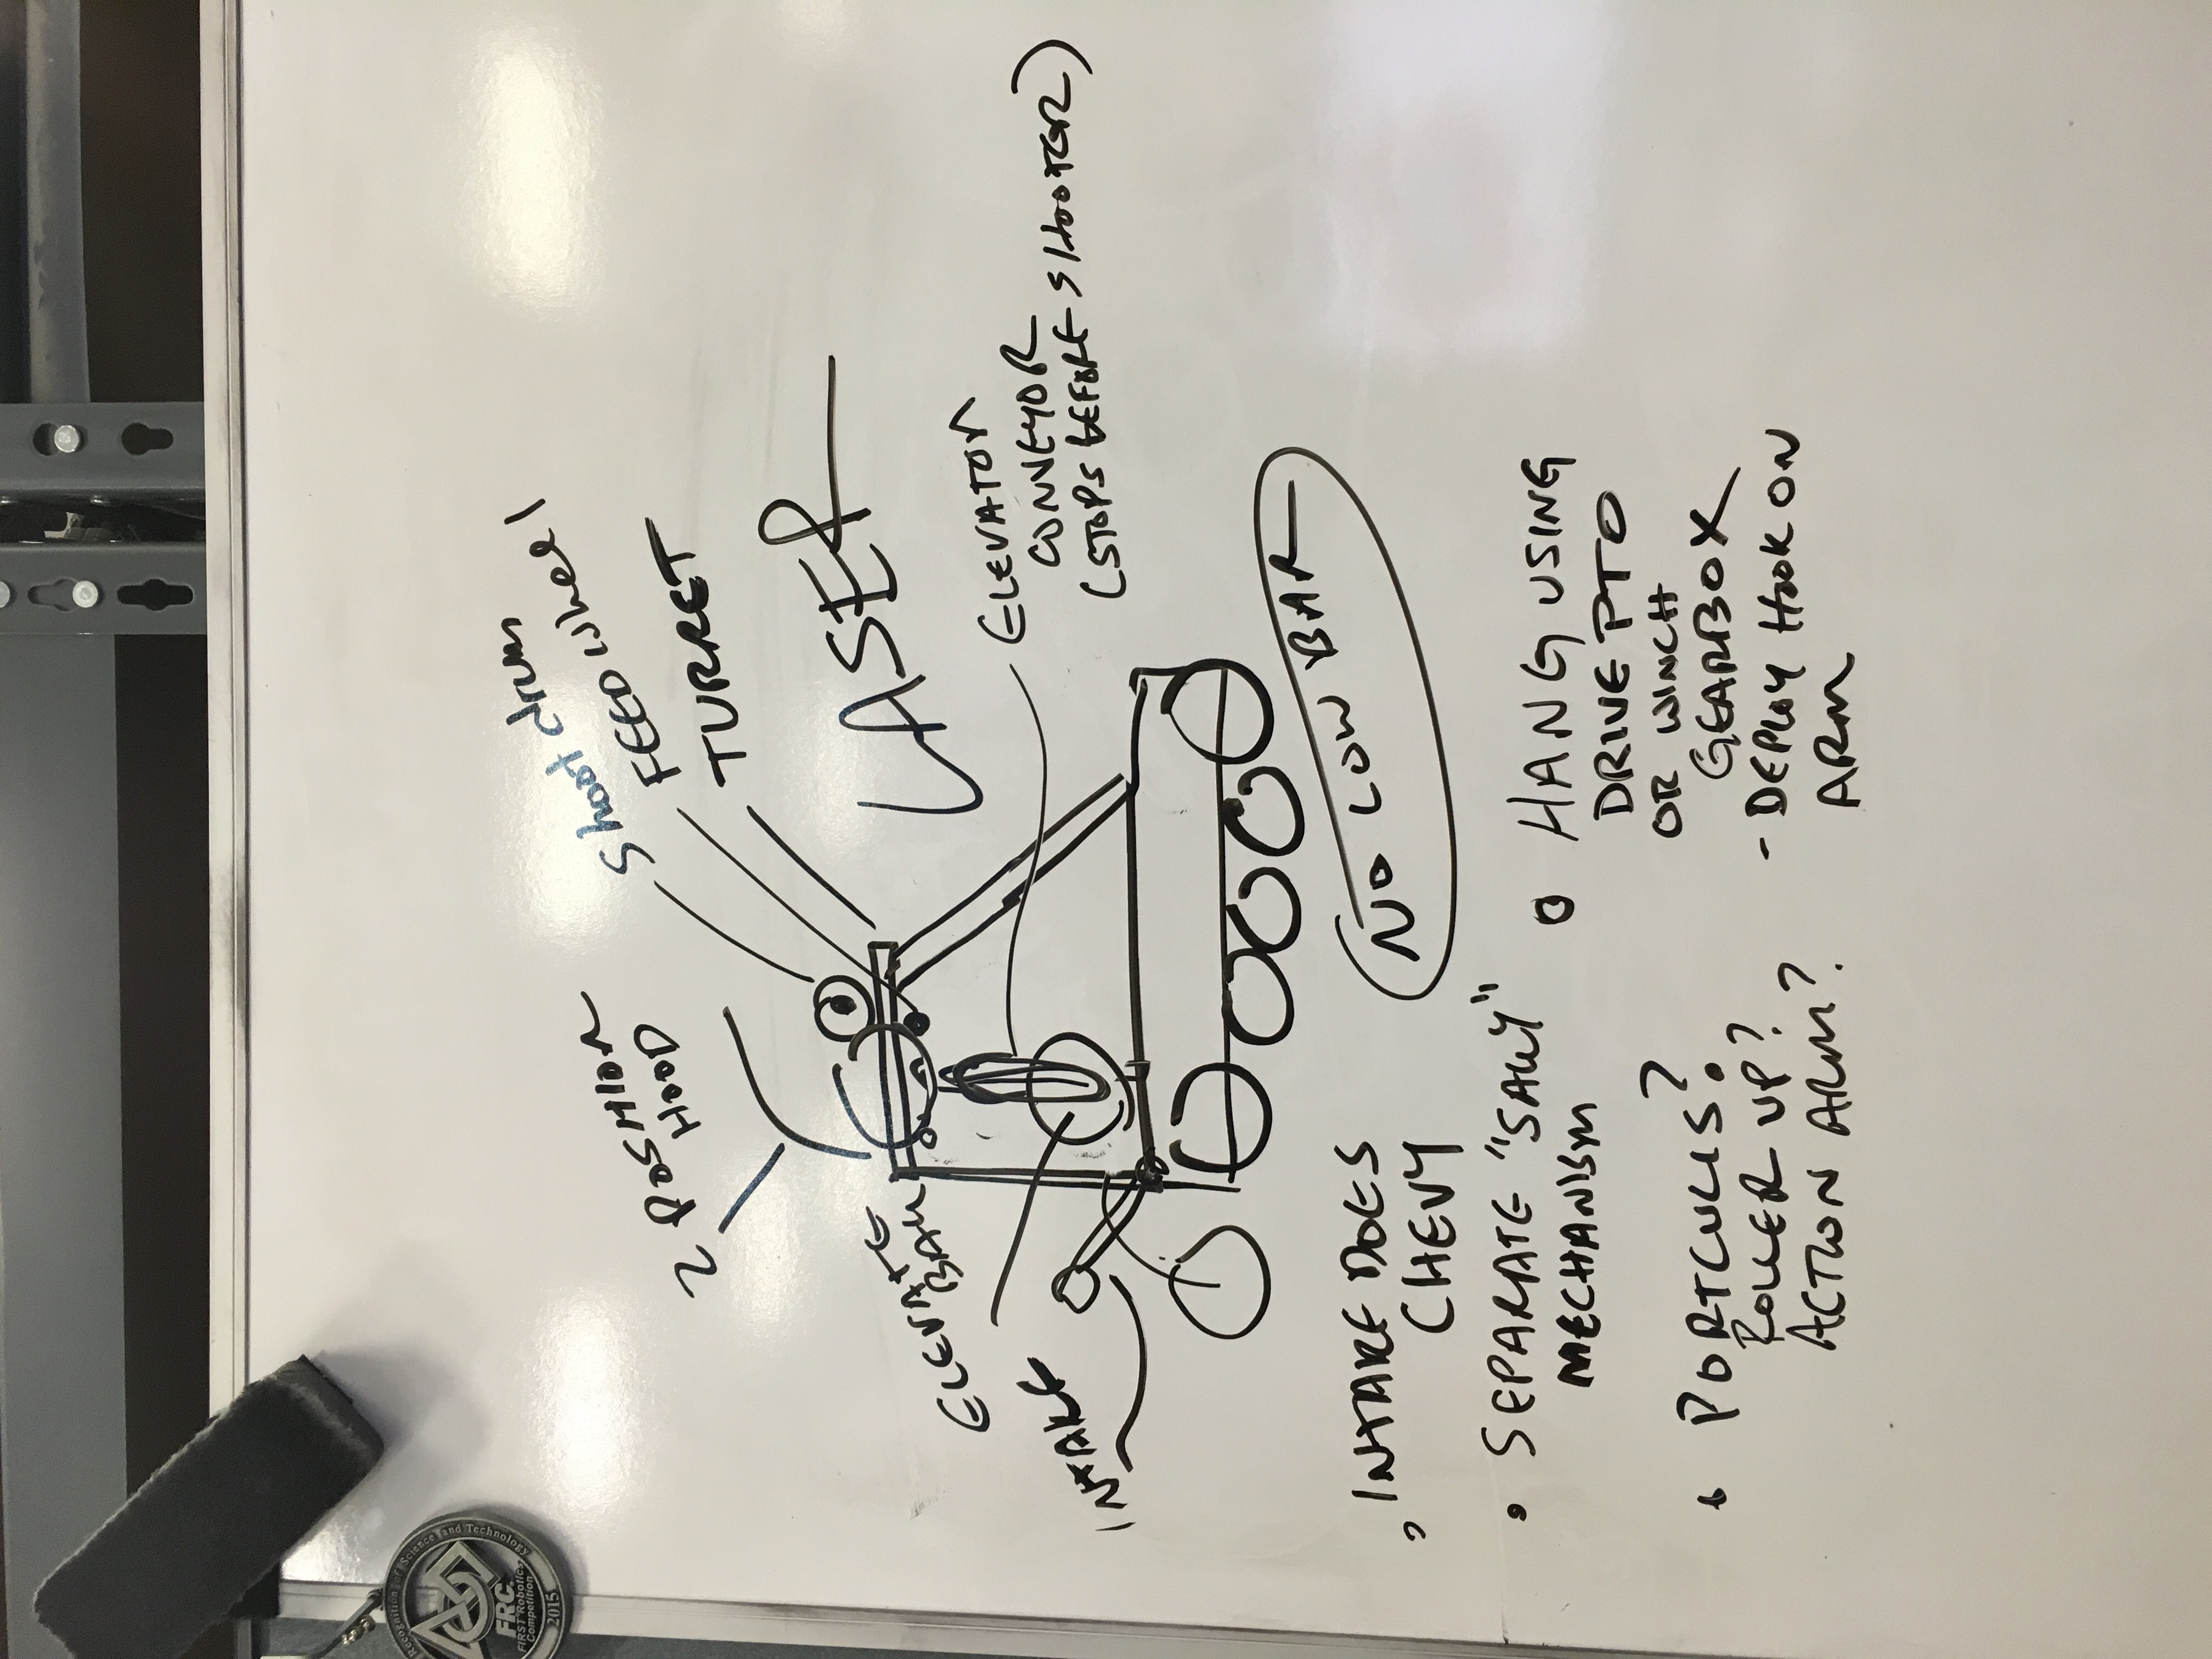 Recognition of Science and Technology
FRC
FIRST Robotics
Competition
2015
2 POSITION
HOOD
Shoot drum
FEED wheel
TURRET
LASER
ELEVATE
BALL
INTAKE
ELEVATOR
CONVEYOR
(STOPS BEFORE SHOOTER)
NO LOW BAR
INTAKE DOES
CHEVY
SEPARATE "SALLY"
MECHANISM
PORTCULLIS?
ROLLER UP?
ACTION ARM?
HANG USING
DRIVE PTO
OR WINCH
GEARBOX
- DEPLOY HOOK ON
ARM